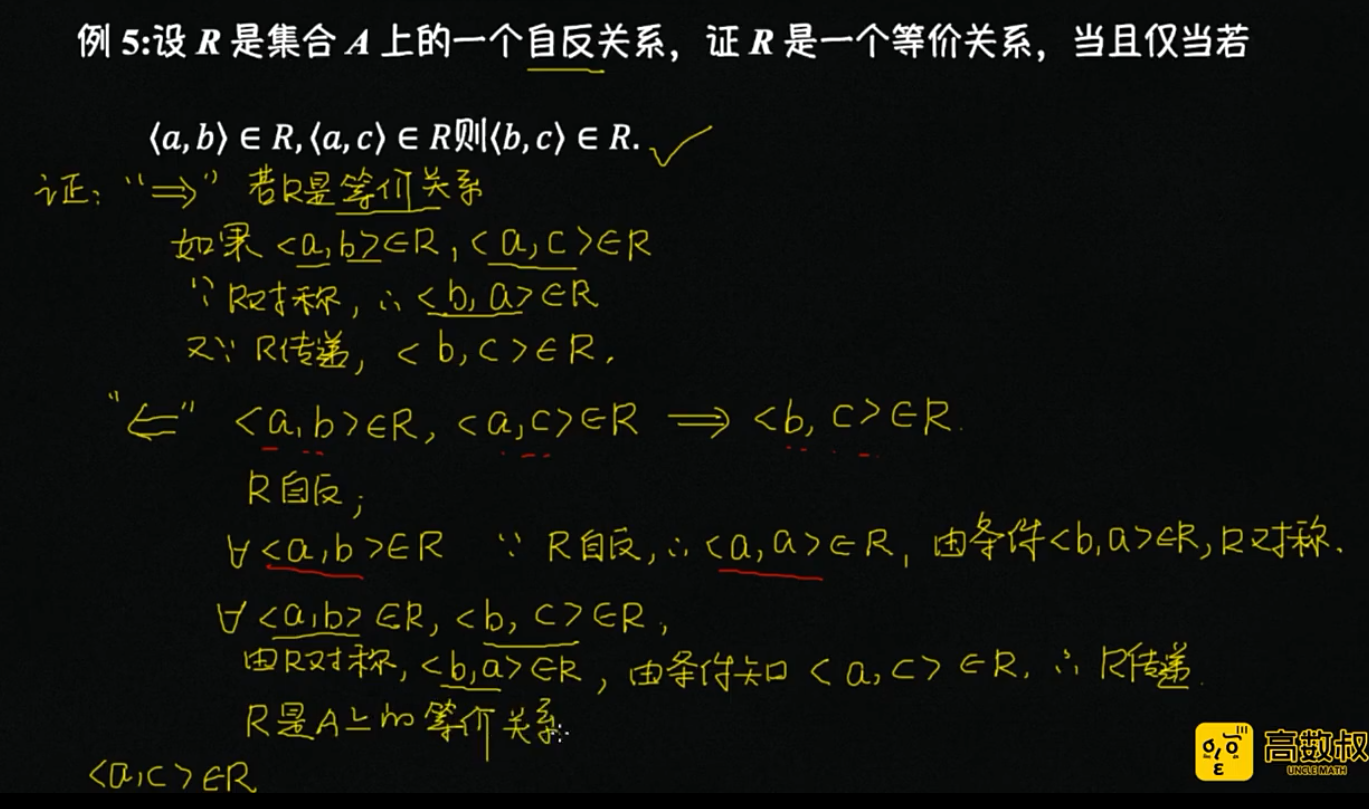 例 5:设 R 是集合 A 上的一个自反关系，证 R 是一个等价关系，当且仅当若
⟨a,b⟩ ∈ R,⟨a,c⟩ ∈ R则⟨b,c⟩ ∈ R.
证："⇒" 若R是等价关系
如果 <a,b>∈R, <a,c>∈R
∵ R对称, ∴ <b,a>∈R
又∵ R传递, <b,c>∈R.
"⇐" <a,b>∈R, <a,c>∈R ⟹ <b,c>∈R.
R自反;
∀<a,b>∈R ∵ R自反,∴<a,a>∈R, 由条件<b,a>∈R,R对称.
∀<a,b>∈R, <b,c>∈R,
由R对称,<b,a>∈R, 由条件知<a,c>∈R. ∴ R传递.
R是A上的等价关系
<a,c>∈R
高数叔
UNCLE MATH